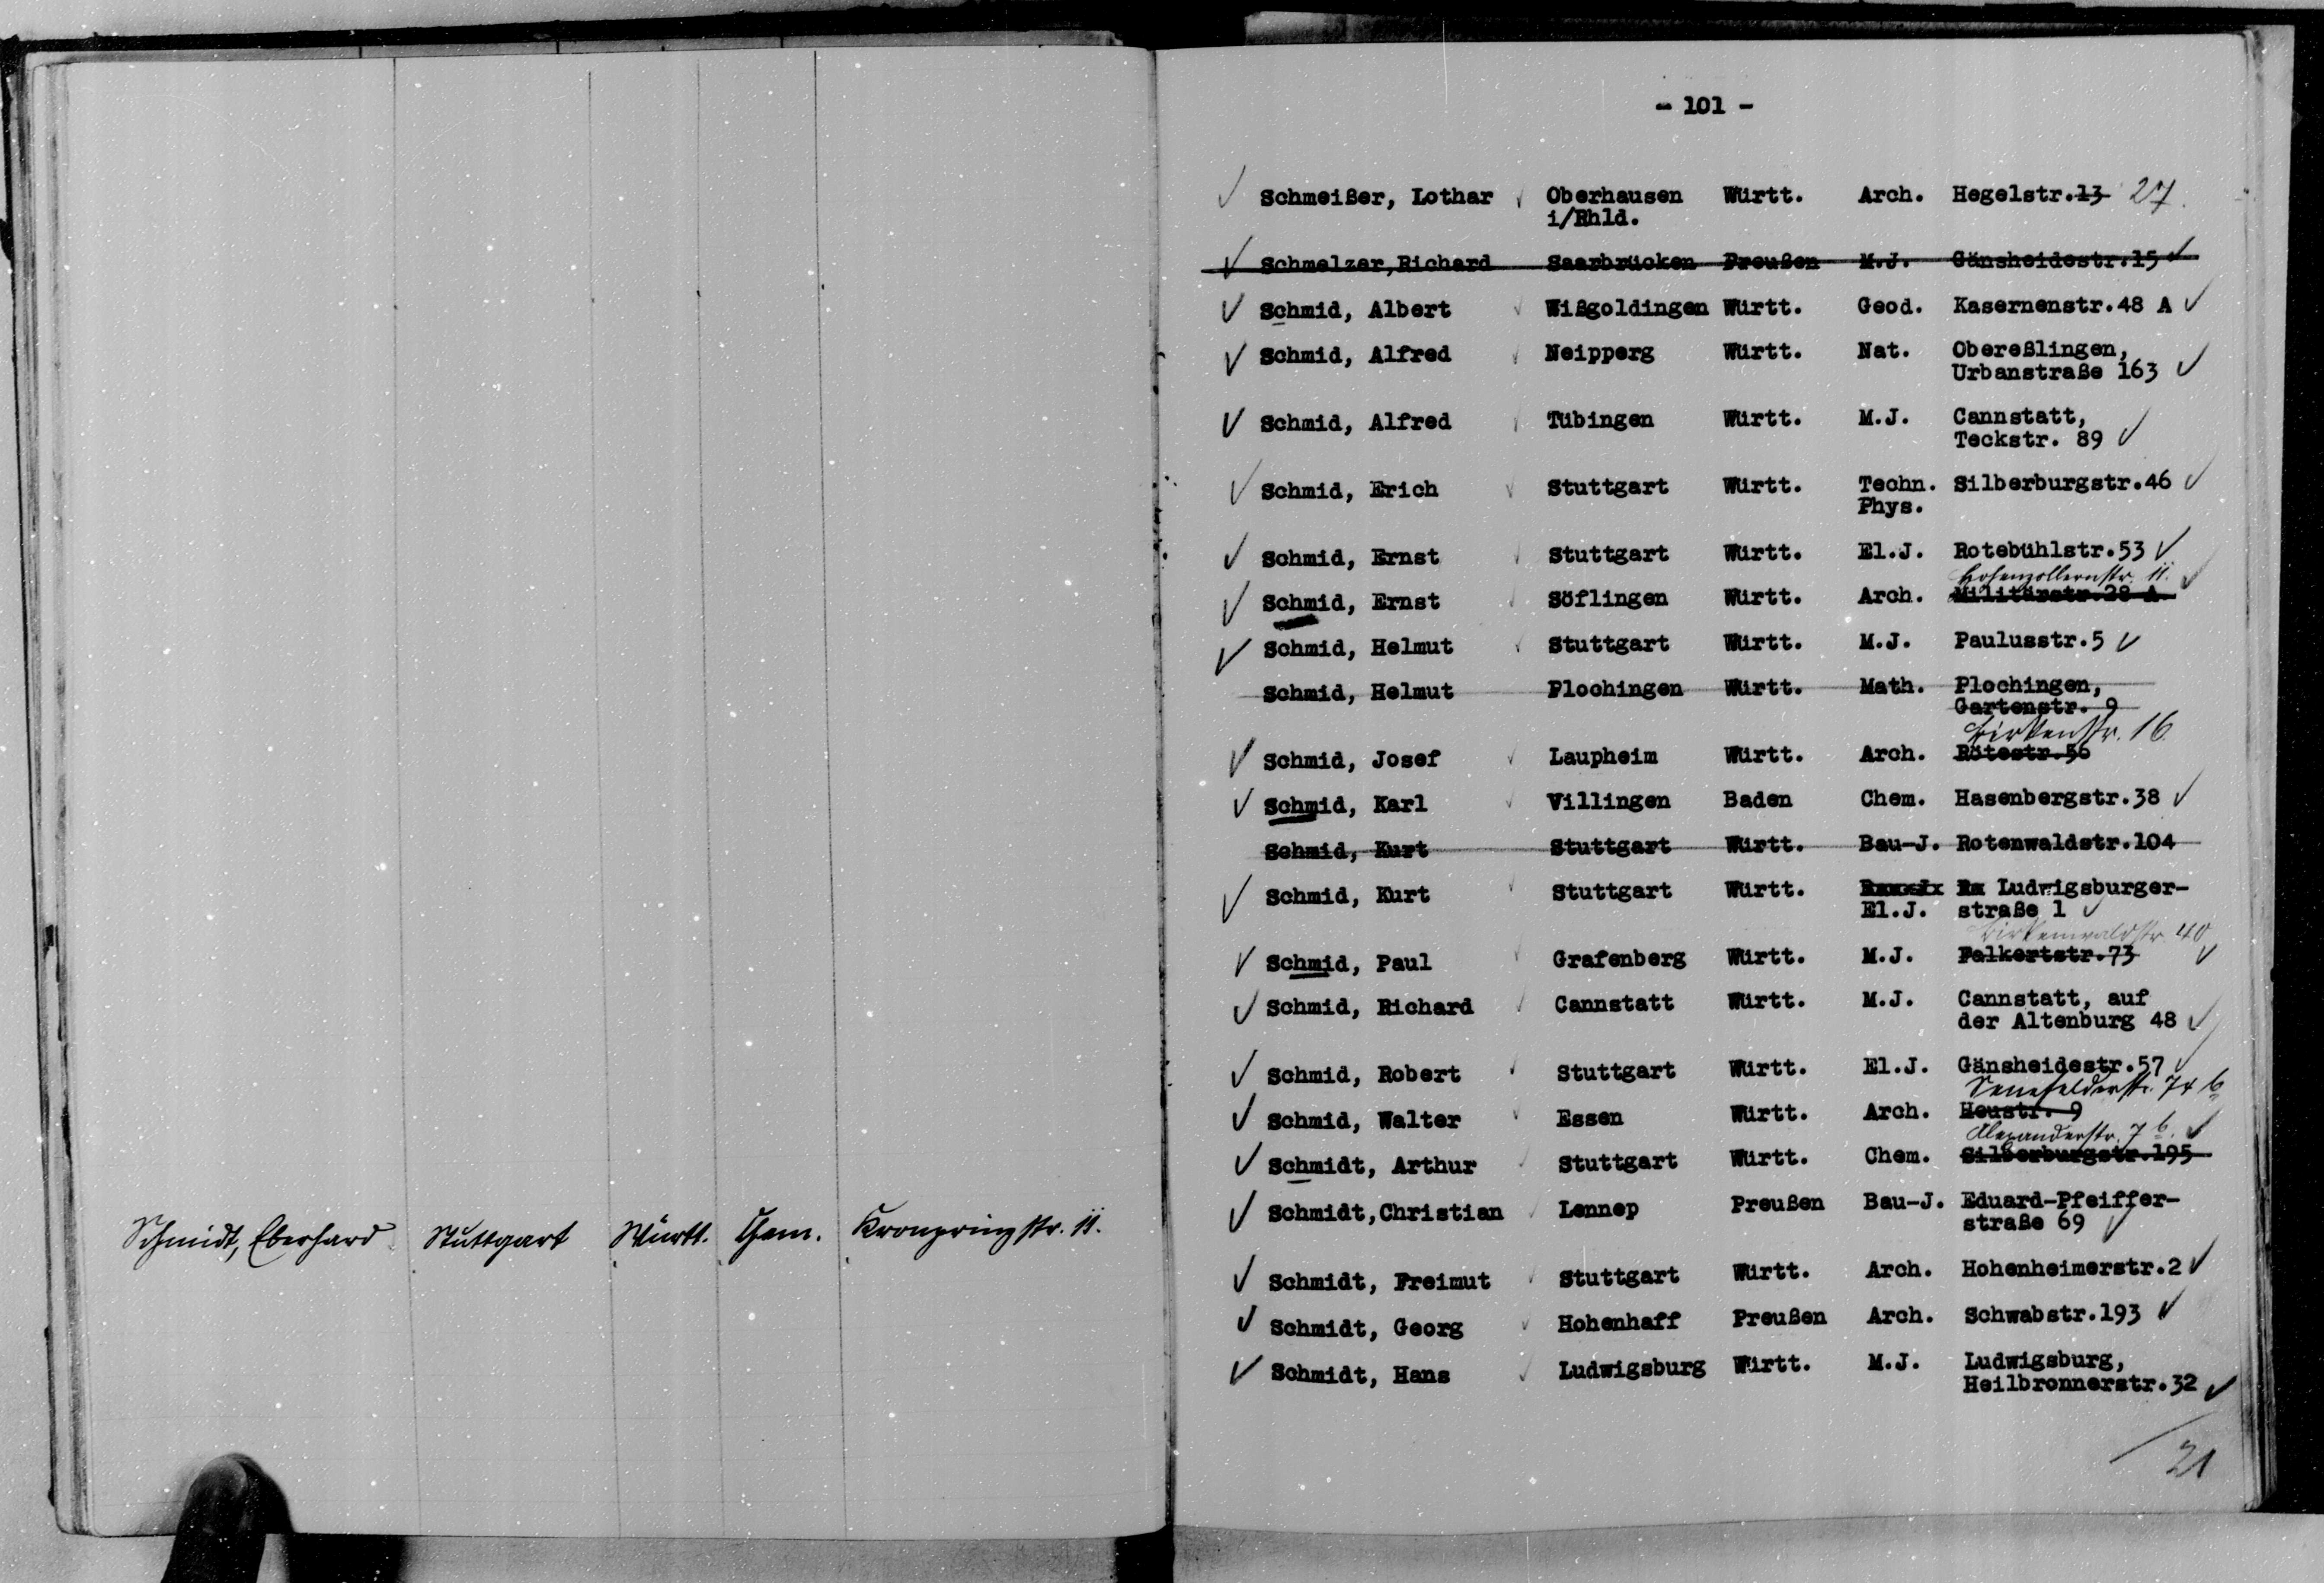 Schmidt, Eberhard Stuttgart Württ. Chem. Kronprinzstr. 11.
- 101 -
Schmeißer, Lothar Oberhausen Württ. Arch. Hegelstr.13 27.
i/Rhld.
Schmelzer,Richard Saarbrücken Preußen M.J. Gänsheidestr.15
Schmid, Albert Wißgoldingen Württ. Geod. Kasernenstr.48 A
Schmid, Alfred Neipperg Württ. Nat. Obereßlingen,
Urbanstraße 163
Schmid, Alfred Tübingen Württ. M.J. Cannstatt,
Teckstr. 89
Schmid, Erich Stuttgart Württ. Techn. Silberburgstr.46
Phys.
Schmid, Ernst Stuttgart Württ. El.J. Rotebühlstr.53
Hohenzollernstr. 11.
Schmid, Ernst Söflingen Württ. Arch. Militärstr.28 A
Schmid, Helmut Stuttgart Württ. M.J. Paulusstr.5
Schmid, Helmut Plochingen Württ. Math. Plochingen,
Gartenstr. 9
Birkenstr. 16
Schmid, Josef Laupheim Württ. Arch. Rötestr.56
Schmid, Karl Villingen Baden Chem. Hasenbergstr.38
Schmid, Kurt Stuttgart Württ. Bau-J. Rotenwaldstr.104
Schmid, Kurt Stuttgart Württ. Ludwigsburger-
El.J. straße 1
Birkenwaldstr. 40
Schmid, Paul Grafenberg Württ. M.J. Falkertstr.73
Schmid, Richard Cannstatt Württ. M.J. Cannstatt, auf
der Altenburg 48
Schmid, Robert Stuttgart Württ. El.J. Gänsheidestr.57
Senefelderstr. 74 b
Schmid, Walter Essen Württ. Arch. Heustr. 9
Alexanderstr. 7 b.
Schmidt, Arthur Stuttgart Württ. Chem. Silberburgstr.195
Schmidt,Christian Lennep Preußen Bau-J. Eduard-Pfeiffer-
straße 69
Schmidt, Freimut Stuttgart Württ. Arch. Hohenheimerstr.2
Schmidt, Georg Hohenhaff Preußen Arch. Schwabstr.193
Schmidt, Hans Ludwigsburg Württ. M.J. Ludwigsburg,
Heilbronnerstr.32
21